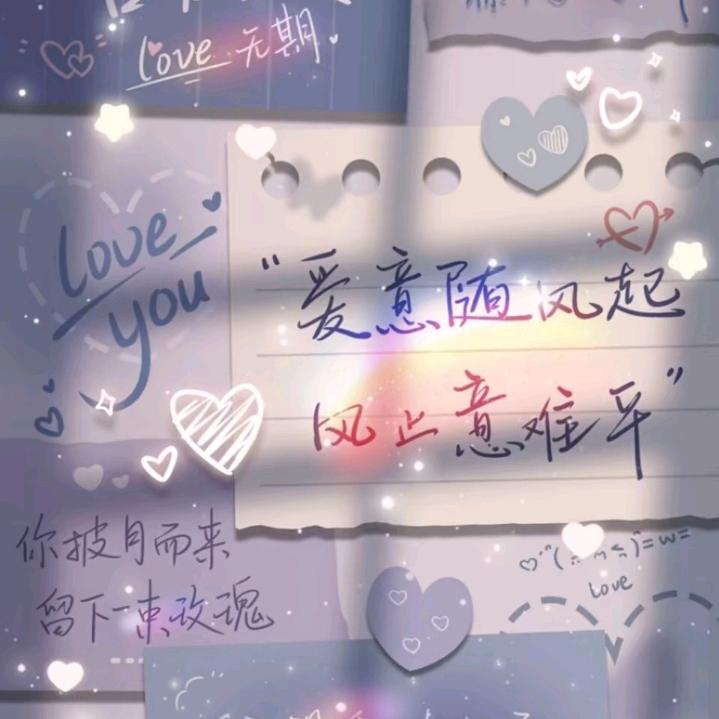 love 无期
love
you
“爱意随风起
风止意难平”
你披月而来
留下一束玫瑰
=w=
love